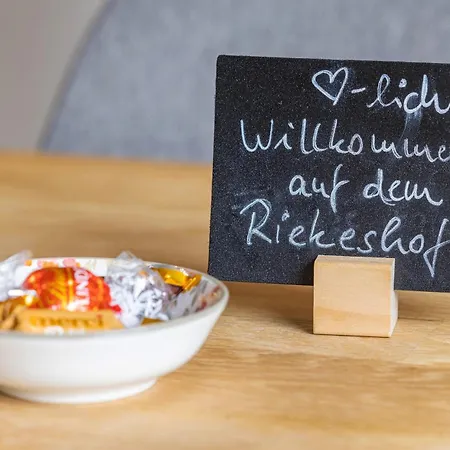 ♡-lich
Willkomme
auf dem
Riekeshof